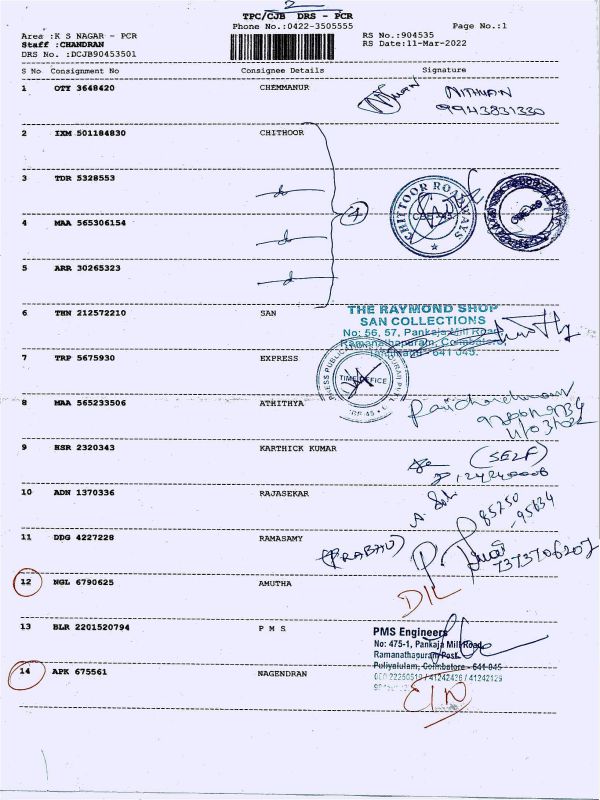 2
TPC/CJB DRS - PCR
Phone No.:0422-3505555
Page No.:1
Area :K S NAGAR - PCR
RS No.:904535
Staff :CHANDRAN
RS Date:11-Mar-2022
DRS No. :DCJB90453501
S No Consignment No Consignee Details Signature
1 OTY 3648420 CHEMMANUR
NITHUAN
9943831330
2 IXM 501184830 CHITHOOR
3 TDR 5328553 do
4 MAA 565306154 do
4
CHITTOOR ROADWAYS
5 ARR 30265323 do
6 THN 212572210 SAN
THE RAYMOND SHOP
SAN COLLECTIONS
No: 56, 57, Pankaja Mill Road
Ramanathapuram, Coimbatore
Tamilnadu - 641 045.
7 TRP 5675930 EXPRESS
TIME OFFICE
8 MAA 565233506 ATHITHYA
9 HSR 2320343 KARTHICK KUMAR
(SELF)
10 ADN 1370336 RAJASEKAR
85250
95634
11 DDG 4227228 RAMASAMY
(PRABHU)
7373706207
12 NGL 6790625 AMUTHA
D/L
13 BLR 2201520794 P M S
PMS Engineers
No: 475-1, Pankaja Mill Road,
Ramanathapuram Post,
Puliyakulam, Coimbatore - 641 045
14 APK 675561 NAGENDRAN